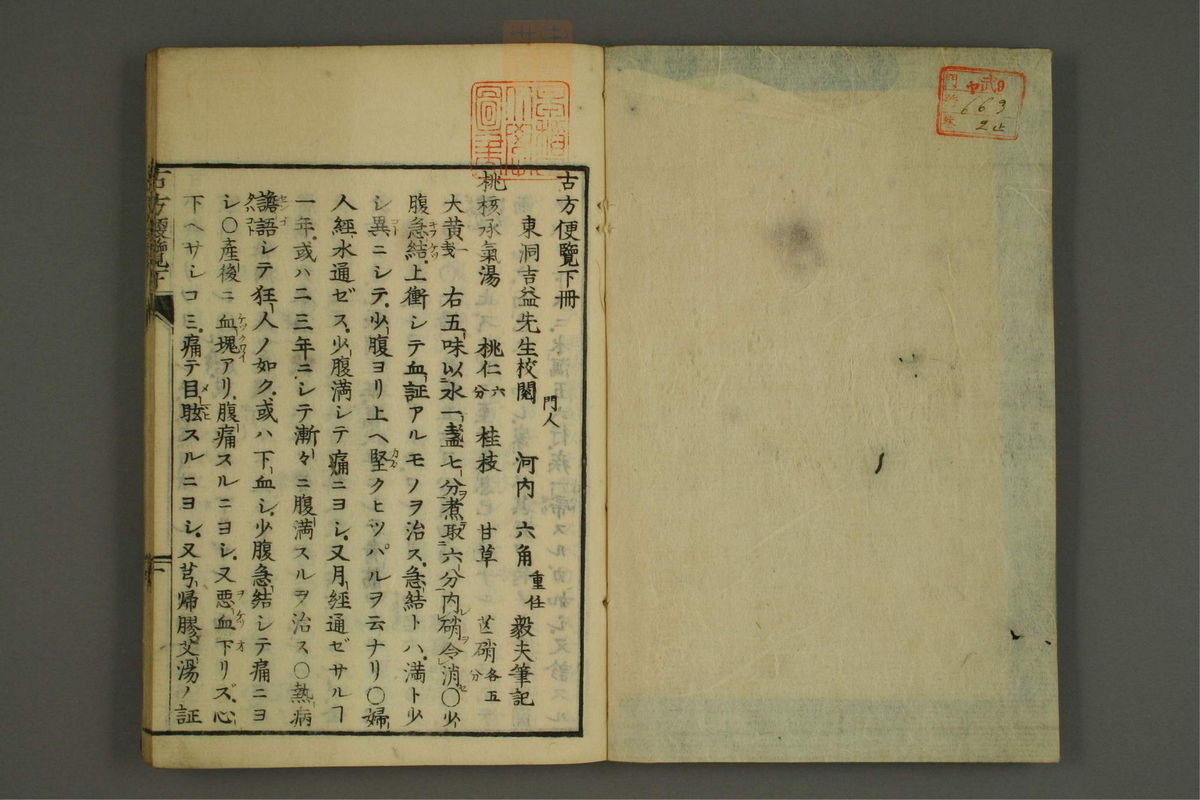 武9
663
2止
古方便覽下冊
東洞吉益先生校閲 門人 河内 六角 重任 毅夫筆記
桃核承氣湯 桃仁 六分 桂枝 甘草 芒硝 各五分
大黄 戔 ○右五味以水一盞七分煮取六分内硝令消○少
腹急結上衝シテ血証アルモノヲ治ス急結トハ満ト少
シ異ニシテ少腹ヨリ上ヘ堅クヒツパルヲ云ナリ○婦
人經水通ゼス少腹満シテ痛ニヨシ又月經通ゼサルヿ
一年或ハ二三年ニシテ漸々ニ腹満スルヲ治ス○熱病
譫語シテ狂人ノ如ク或ハ下血シ少腹急結シテ痛ニヨ
シ○產後ニ血塊アリ腹痛スルニヨシ又悪血下リズ心
下ヘサシコミ痛テ目眩スルニヨシ又芎帰膠艾湯ノ証
古方便覽下